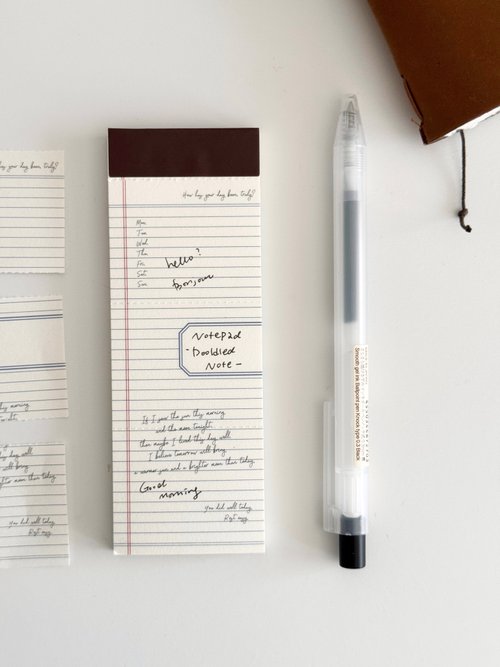 How has your day been, truly?
Mon
Tue
Wed
Thu
Fri
Sat
Sun
hello?
Bonjour
Notepad
-Doodled
Note-
If I pass the sun this morning
and the moon tonight,
then maybe I lived this day well.
I believe tomorrow will bring
a warmer sun and a brighter moon than today.
Good
morning
You did well today.
Rest easy.
day been, truly?
morning
day well.
will bring
moon than today.
You did well today.
Rest easy.
Smooth gel ink Ballpoint pen Knock type 0.3 Black